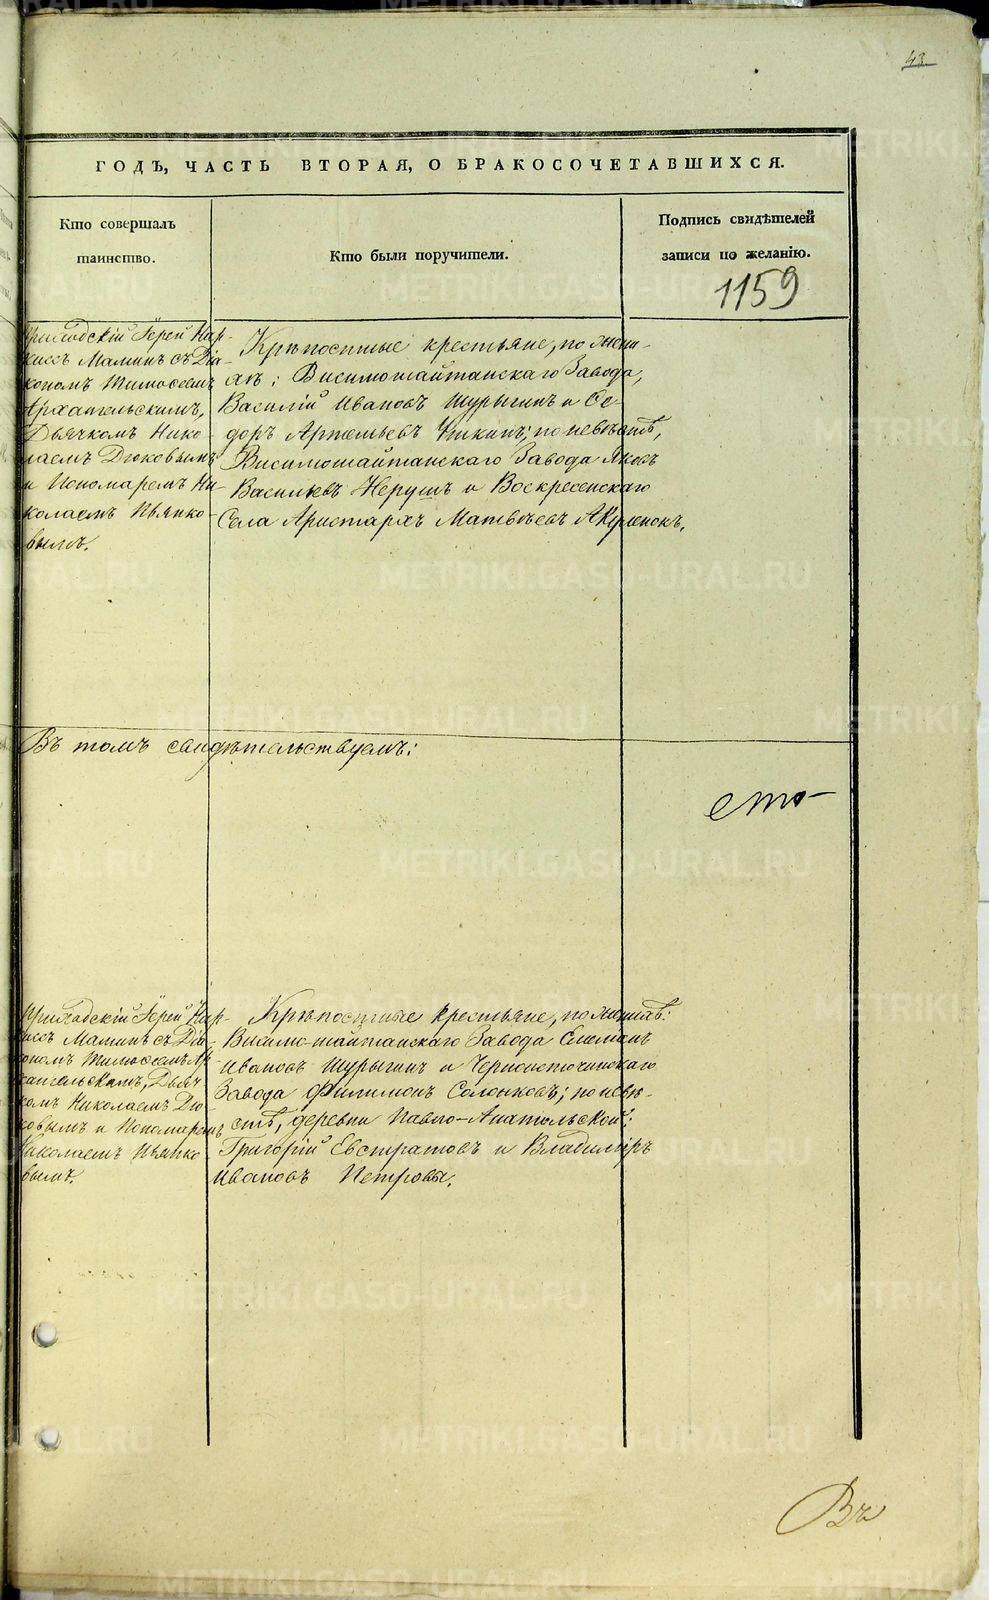 43
ГОДЪ, ЧАСТЬ ВТОРАЯ, О БРАКОСОЧЕТАВШИХСЯ.
Кто совершалъ
таинство.
Кто были поручители.
Подпись свидѣтелей
записи по желанію.
1159
Приходскій Іерей Нар-
кисъ Маминъ съ Діа-
кономъ Тимофеемъ
Архангельскимъ,
Дьячкомъ Нико-
лаемъ Дюковымъ
и Пономаремъ Ни-
колаемъ Пьянко-
вымъ.
Крѣпостные крестьяне, по жени-
хѣ: Висимошайтанскаго Завода,
Василій Ивановъ Шурыгинъ и Ѳе-
доръ Артемьевъ Чикинъ; по невѣстѣ,
Висимошайтанскаго Завода Яковъ
Васильевъ Нерушъ и Воскресенскаго
Села Аристархъ Матвѣевъ Акуленокъ.
Въ томъ свидѣтельствуемъ:
Приходскій Іерей Нар-
кисъ Маминъ съ Діа-
кономъ Тимофеемъ Ар-
хангельскимъ, Дьяч-
комъ Николаемъ Дю-
ковымъ и Пономаремъ
Николаемъ Пьянко-
вымъ.
Крѣпостные крестьяне, по женихѣ:
Висимо-шайтанскаго Завода
Ивановъ Шурыгинъ и Черноисточинскаго
Завода Филимонъ Солонковъ; по невѣ-
стѣ, деревни Павло-Анатольской:
Григорій Евстратовъ и Владиміръ
Ивановъ Петровы.
Въ
METRIKI.GASO-URAL.RU